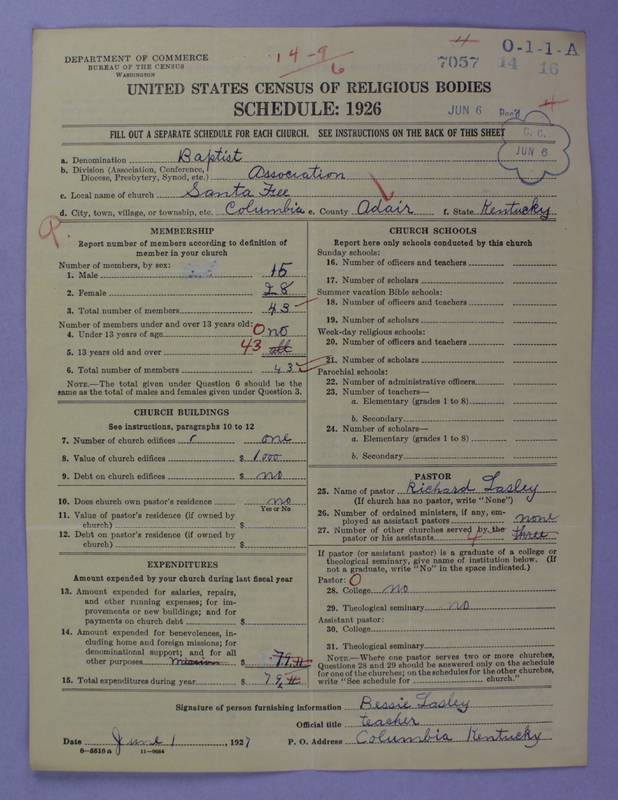 DEPARTMENT OF COMMERCE
BUREAU OF THE CENSUS
WASHINGTON
14-9
6
7057 14 16
O-1-1-A
UNITED STATES CENSUS OF RELIGIOUS BODIES
SCHEDULE: 1926
JUN 6 Rec'd
FILL OUT A SEPARATE SCHEDULE FOR EACH CHURCH. SEE INSTRUCTIONS ON THE BACK OF THIS SHEET
C. C.
JUN 6
a. Denomination Baptist
b. Division (Association, Conference, Diocese, Presbytery, Synod, etc.) Association
c. Local name of church Santa Fee
d. City, town, village, or township, etc. Columbia e. County Adair f. State Kentucky
P.
MEMBERSHIP
Report number of members according to definition of
member in your church
Number of members, by sex:
1. Male 15
2. Female 28
3. Total number of members 43
Number of members under and over 13 years old:
4. Under 13 years of age 0 no
5. 13 years old and over 43 all
6. Total number of members 43
NOTE.—The total given under Question 6 should be the
same as the total of males and females given under Question 3.
CHURCH BUILDINGS
See instructions, paragraphs 10 to 12
7. Number of church edifices one
8. Value of church edifices $ 1000
9. Debt on church edifices $ no
10. Does church own pastor's residence no
Yes or No
11. Value of pastor's residence (if owned by
church) $
12. Debt on pastor's residence (if owned by
church) $
EXPENDITURES
Amount expended by your church during last fiscal year
13. Amount expended for salaries, repairs,
and other running expenses; for im-
provements or new buildings; and for
payments on church debt $
14. Amount expended for benevolences, in-
cluding home and foreign missions; for
denominational support; and for all
other purposes mission $ 79
15. Total expenditures during year $ 79
CHURCH SCHOOLS
Report here only schools conducted by this church
Sunday schools:
16. Number of officers and teachers
17. Number of scholars
Summer vacation Bible schools:
18. Number of officers and teachers
19. Number of scholars
Week-day religious schools:
20. Number of officers and teachers
21. Number of scholars
Parochial schools:
22. Number of administrative officers
23. Number of teachers—
a. Elementary (grades 1 to 8)
b. Secondary
24. Number of scholars—
a. Elementary (grades 1 to 8)
b. Secondary $
PASTOR
25. Name of pastor Richard Lasley
(If church has no pastor, write "None")
26. Number of ordained ministers, if any, em-
ployed as assistant pastors none
27. Number of other churches served by the
pastor or his assistants 4 three
If pastor (or assistant pastor) is a graduate of a college or
theological seminary, give name of institution below. (If
not a graduate, write "No" in the space indicated.)
Pastor: 0
28. College no
29. Theological seminary no
Assistant pastor:
30. College
31. Theological seminary
NOTE.—Where one pastor serves two or more churches,
Questions 28 and 29 should be answered only on the schedule
for one of the churches; on the schedules for the other churches,
write "See schedule for church."
Signature of person furnishing information Bessie Lasley
Official title teacher
Date June 1, 1927 P. O. Address Columbia Kentucky
8-5516a 11-9084